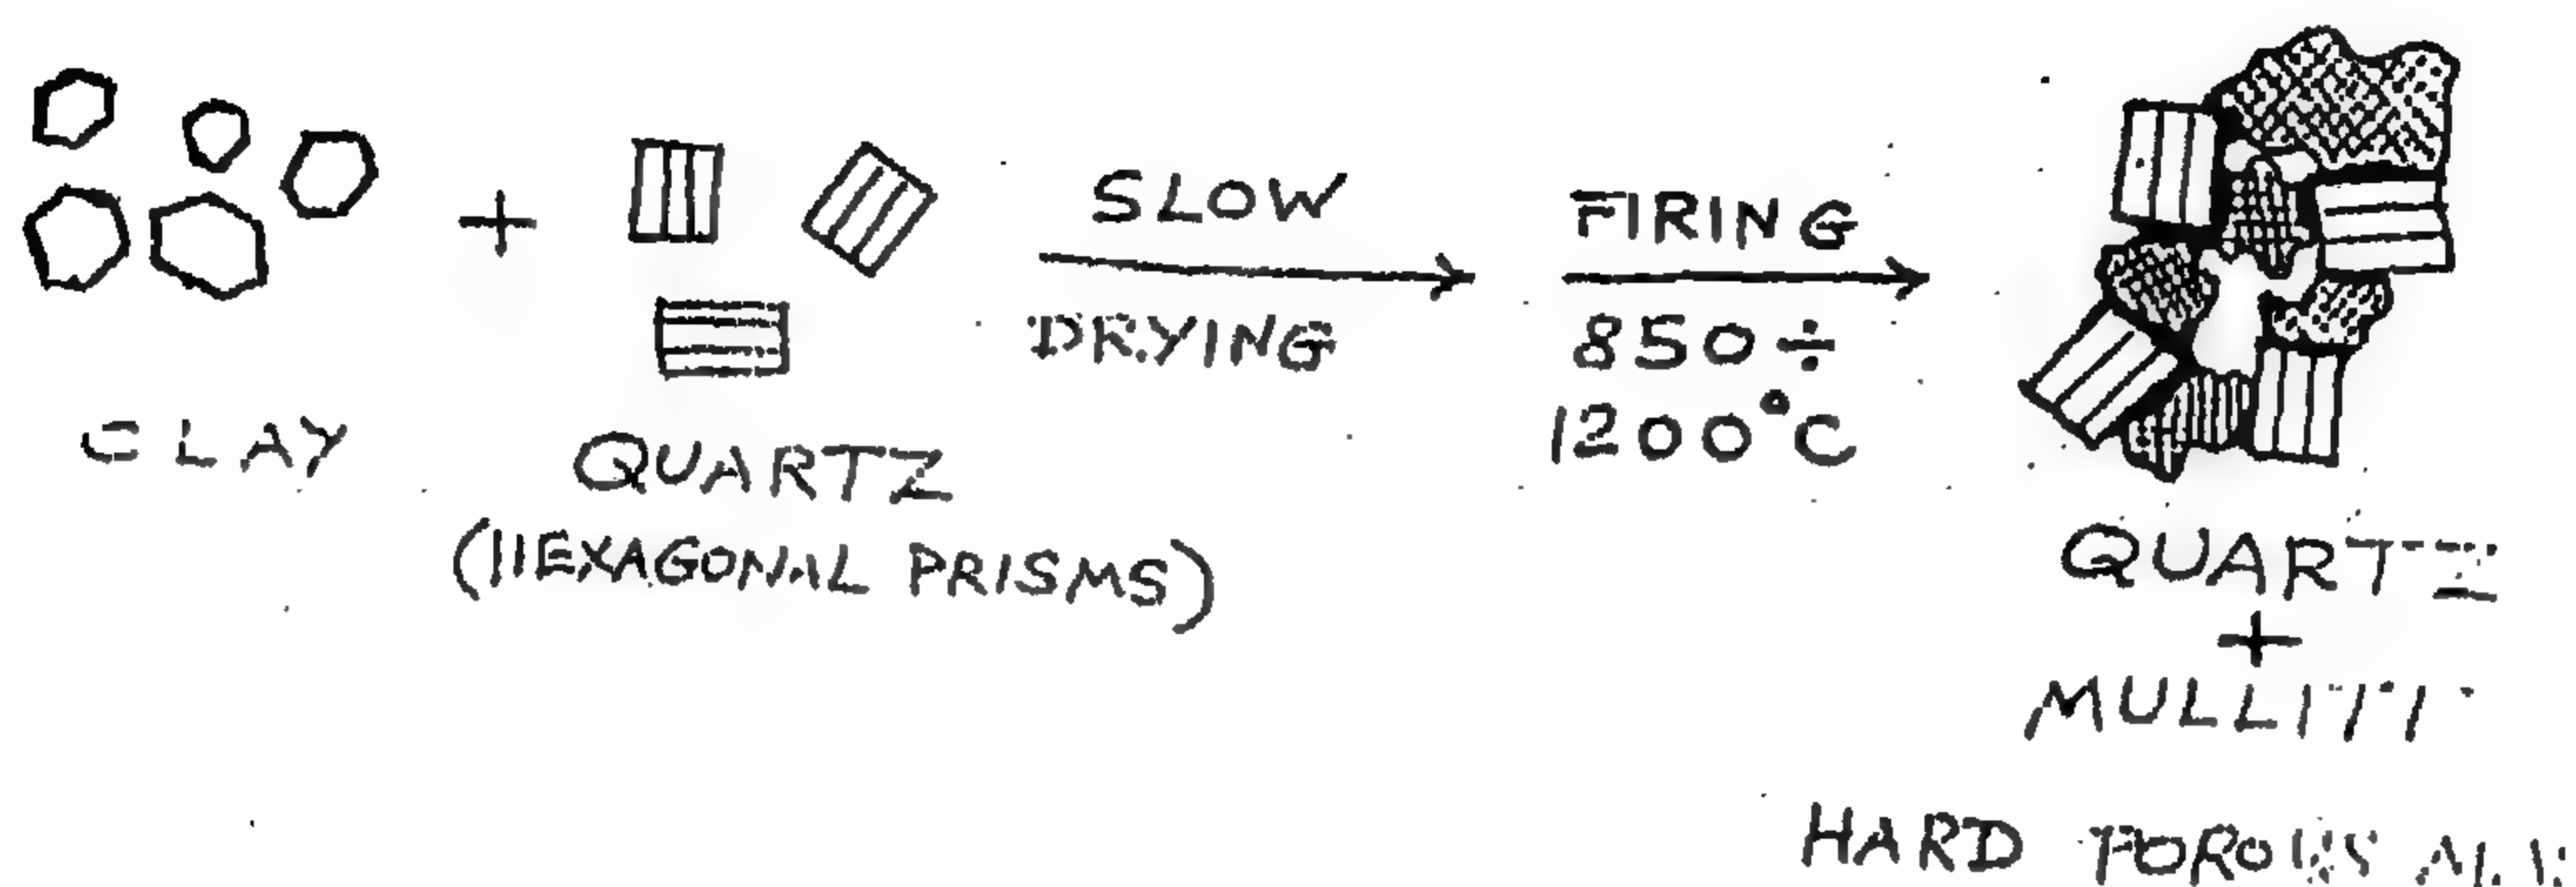 CLAY
+
QUARTZ
(HEXAGONAL PRISMS)
SLOW
DRYING
FIRING
850 ÷
1200°C
QUARTZ
+
MULLITE
HARD POROUS